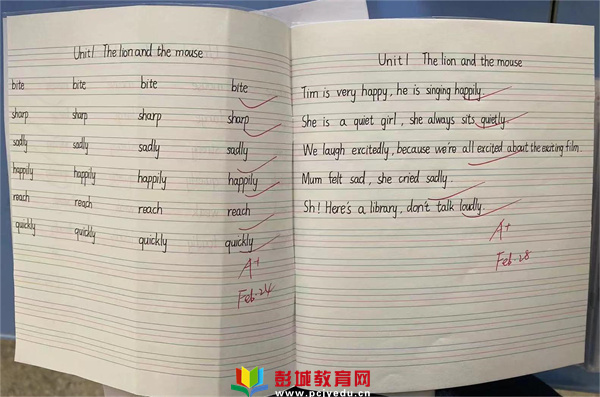 Unit 1 The lion and the mouse
bite bite bite bite
sharp sharp sharp sharp
sadly sadly sadly sadly
happily happily happily happily
reach reach reach reach
quickly quickly quickly quickly
A+
Feb-24
Unit 1 The lion and the mouse
Tim is very happy, he is singing happily.
She is a quiet girl, she always sits quietly.
We laugh excitedly, because we're all excited about the exciting film.
Mum felt sad, she cried sadly.
Sh! Here's a library, don't talk loudly.
A+
Feb-28
彭城教育网
www.pcjyedu.cn